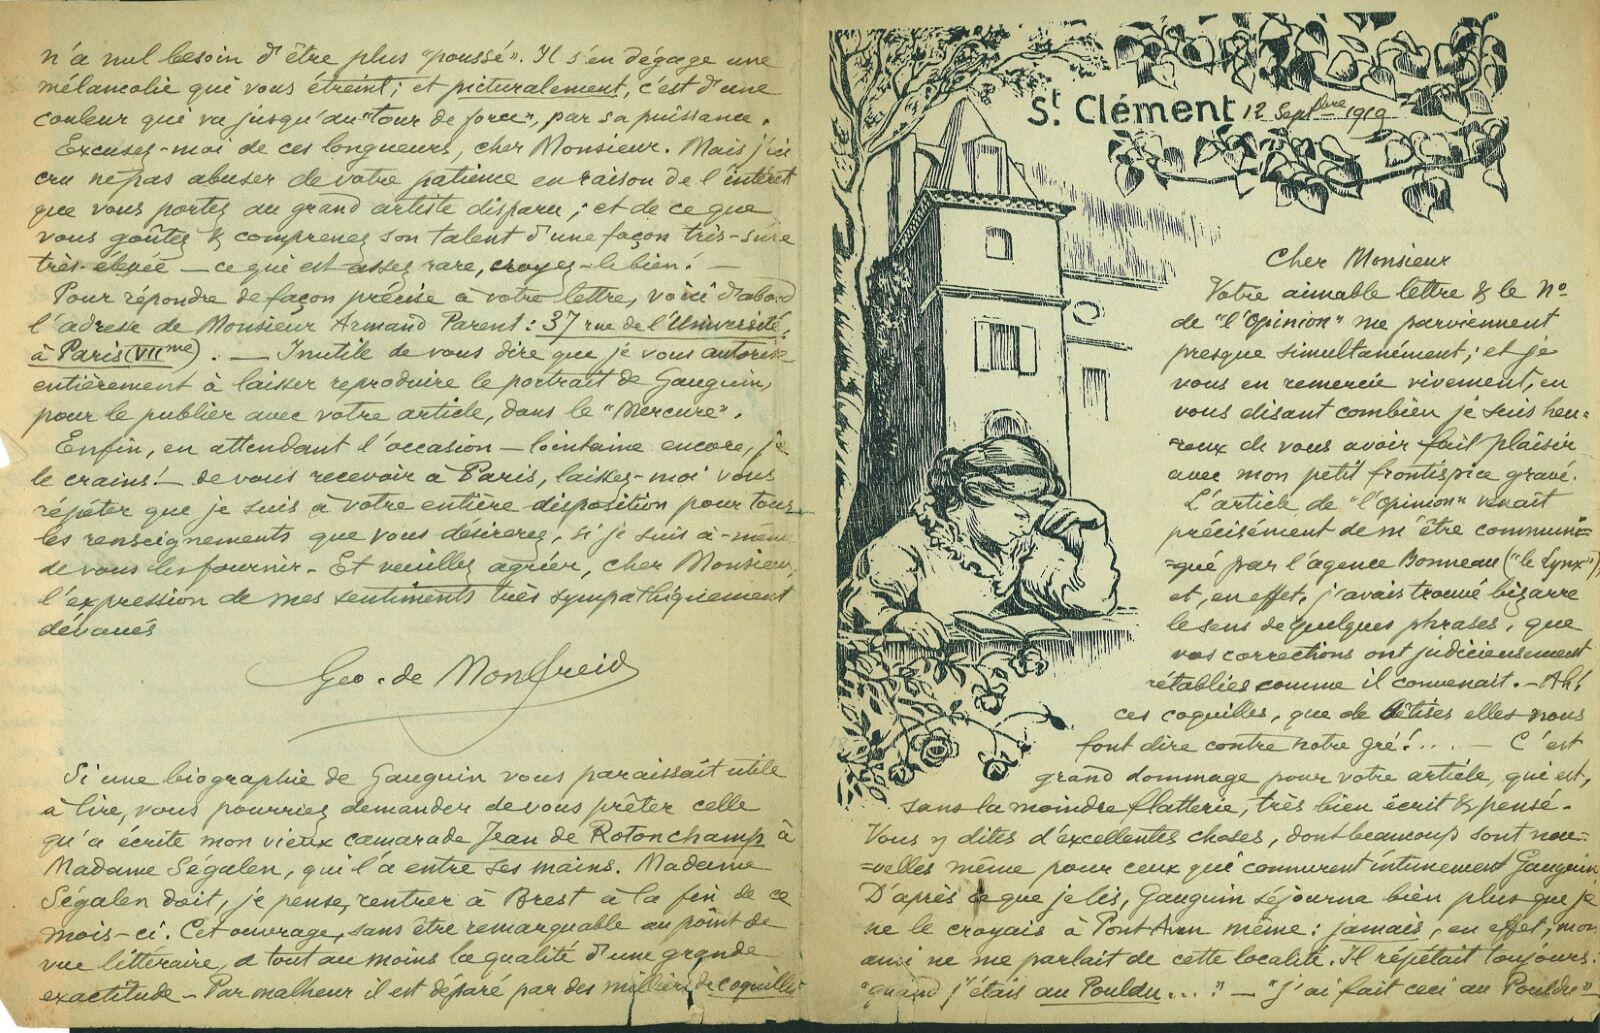 St. Clément 12 Septbre 1919
Cher Monsieur
Votre aimable lettre & le No
de "l'Opinion" me parviennent
presque simultanément; et je
vous en remercie vivement, en
vous disant combien je suis heu=
=reux de vous avoir fait plaisir
avec mon petit frontispice gravé.
L'article de "l'Opinion" venait
précisément de m'être communi=
=qué par l'agence Bonneau ("le Lynx"),
et, en effet, j'avais trouvé bizarre
le sens de quelques phrases, que
vos corrections ont judicieusement
rétablies comme il convenait. - Ah!
ces coquilles, que de bêtises elles nous
font dire contre notre gré!... - C'est
grand dommage pour votre article, qui est,
sans la moindre flatterie, très bien écrit & pensé.
Vous y dites d'excellentes choses, dont beaucoup sont nou=
=velles même pour ceux qui connurent intimement Gauguin
D'après ce que je lis, Gauguin séjourna bien plus que je
ne le croyais à Pont Aven même: jamais, en effet, mon
ami ne me parlait de cette localité. Il répétait toujours:
"quand j'étais au Pouldu..." - "J'ai fait ceci au Pouldu" -
n'a nul besoin d'être plus "poussé". Il s'en dégage une
mélancolie qui vous étreint; et picturalement, c'est d'une
couleur qui va jusqu'au "tour de force", par sa puissance.
Excusez-moi de ces longueurs, cher Monsieur. Mais j'ai
cru ne pas abuser de votre patience en raison de l'intérêt
que vous portez au grand artiste disparu; et de ce que
vous goûtez & comprenez son talent d'une façon très-sûre
très-élevée - ce qui est assez rare, croyez-le bien! -
Pour répondre de façon précise à votre lettre, voici d'abord
l'adresse de Monsieur Armand Parent: 37 rue de l'Université,
à Paris (VIIme). - Inutile de vous dire que je vous autorise
entièrement à laisser reproduire le portrait de Gauguin,
pour le publier avec votre article, dans le "Mercure".
Enfin, en attendant l'occasion - lointaine encore, je
le crains! - de vous recevoir à Paris, laissez-moi vous
répéter que je suis à votre entière disposition pour tous
les renseignements que vous désirerez, si je suis à-même
de vous les fournir - Et veuillez agréer, cher Monsieur,
l'expression de mes sentiments très sympathiquement
dévoués
Geo. de Monfreid
Si une biographie de Gauguin vous paraissait utile
à lire, vous pourriez demander de vous prêter celle
qu'a écrite mon vieux camarade Jean de Rotonchamp à
Madame Ségalen, qui l'a entre ses mains. Madame
Ségalen doit, je pense, rentrer à Brest à la fin de ce
mois-ci. Cet ouvrage, sans être remarquable au point de
vue littéraire, a tout au moins la qualité d'une grande
exactitude - Par malheur il est déparé par des milliers de coquilles